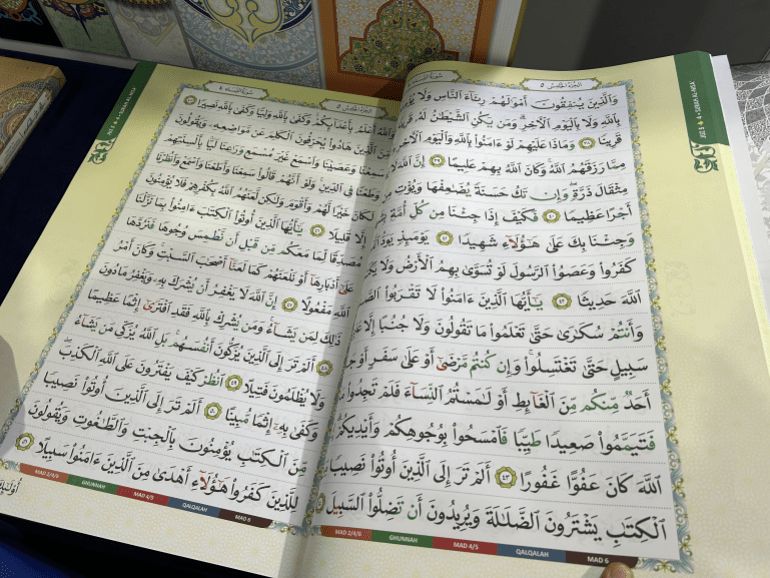 الجزء الخامس ٥
سورة النساء
وَٱلَّذِينَ يُنفِقُونَ أَمْوَٰلَهُمْ رِئَآءَ ٱلنَّاسِ وَلَا
بِٱللَّهِ وَلَا بِٱلْيَوْمِ ٱلْءَاخِرِ وَمَن يَكُنِ ٱلشَّيْطَٰنُ لَهُۥ
قَرِينًا ٣٨ وَمَاذَا عَلَيْهِمْ لَوْ ءَامَنُوا۟ بِٱللَّهِ وَٱلْيَوْمِ ٱلْءَاخِرِ
مِمَّا رَزَقَهُمُ ٱللَّهُ وَكَانَ ٱللَّهُ بِهِمْ عَلِيمًا ٣٩ إِنَّ ٱللَّهَ
مِثْقَالَ ذَرَّةٍ وَإِن تَكُ حَسَنَةً يُضَٰعِفْهَا وَيُؤْتِ
أَجْرًا عَظِيمًا ٤٠ فَكَيْفَ إِذَا جِئْنَا مِن كُلِّ أُمَّةٍ
وَجِئْنَا بِكَ عَلَىٰ هَٰٓؤُلَآءِ شَهِيدًا ٤١ يَوْمَئِذٍ يَوَدُّ
كَفَرُوا۟ وَعَصَوُا۟ ٱلرَّسُولَ لَوْ تُسَوَّىٰ بِهِمُ ٱلْأَرْضُ وَلَا
ٱللَّهَ حَدِيثًا ٤٢ يَٰٓأَيُّهَا ٱلَّذِينَ ءَامَنُوا۟ لَا تَقْرَبُوا۟
وَأَنتُمْ سُكَٰرَىٰ حَتَّىٰ تَعْلَمُوا۟ مَا تَقُولُونَ وَلَا جُنُبًا إِلَّا
سَبِيلٍ حَتَّىٰ تَغْتَسِلُوا۟ وَإِن كُنتُم مَّرْضَىٰٓ أَوْ عَلَىٰ سَفَرٍ أَوْ
أَحَدٌ مِّنكُم مِّنَ ٱلْغَآئِطِ أَوْ لَٰمَسْتُمُ ٱلنِّسَآءَ فَلَمْ تَجِدُوا۟
فَتَيَمَّمُوا۟ صَعِيدًا طَيِّبًا فَٱمْسَحُوا۟ بِوُجُوهِكُمْ وَأَيْدِيكُمْ
ٱللَّهَ كَانَ عَفُوًّا غَفُورًا ٤٣ أَلَمْ تَرَ إِلَى ٱلَّذِينَ أُوتُوا۟ نَصِيبًا
ٱلْكِتَٰبِ يَشْتَرُونَ ٱلضَّلَٰلَةَ وَيُرِيدُونَ أَن تَضِلُّوا۟ ٱلسَّبِيلَ
MAD 2/4/6 GHUNNAH MAD 4/5 QALQALAH MAD 6
JUZ 5 4 - SURAH AN-NISA'
الجزء الخامس ٥
سورة النساء ٤
وَٱللَّهُ أَعْلَمُ بِأَعْدَآئِكُمْ وَكَفَىٰ بِٱللَّهِ وَلِيًّا وَكَفَىٰ بِٱللَّهِ نَصِيرًا
مِّنَ ٱلَّذِينَ هَادُوا۟ يُحَرِّفُونَ ٱلْكَلِمَ عَن مَّوَاضِعِهِۦ وَيَقُولُونَ
سَمِعْنَا وَعَصَيْنَا وَٱسْمَعْ غَيْرَ مُسْمَعٍ وَرَٰعِنَا لَيًّۢا بِأَلْسِنَتِهِمْ
وَطَعْنًا فِى ٱلدِّينِ وَلَوْ أَنَّهُمْ قَالُوا۟ سَمِعْنَا وَأَطَعْنَا وَٱسْمَعْ وَٱنظُرْنَا
لَكَانَ خَيْرًا لَّهُمْ وَأَقْوَمَ وَلَٰكِن لَّعَنَهُمُ ٱللَّهُ بِكُفْرِهِمْ فَلَا يُؤْمِنُونَ
إِلَّا قَلِيلًا ٤٦ يَٰٓأَيُّهَا ٱلَّذِينَ أُوتُوا۟ ٱلْكِتَٰبَ ءَامِنُوا۟ بِمَا نَزَّلْنَا
مُصَدِّقًا لِّمَا مَعَكُم مِّن قَبْلِ أَن نَّطْمِسَ وُجُوهًا فَنَرُدَّهَا
عَلَىٰٓ أَدْبَارِهَآ أَوْ نَلْعَنَهُمْ كَمَا لَعَنَّآ أَصْحَٰبَ ٱلسَّبْتِ وَكَانَ أَمْرُ
ٱللَّهِ مَفْعُولًا ٤٧ إِنَّ ٱللَّهَ لَا يَغْفِرُ أَن يُشْرَكَ بِهِۦ وَيَغْفِرُ مَا دُونَ
ذَٰلِكَ لِمَن يَشَآءُ وَمَن يُشْرِكْ بِٱللَّهِ فَقَدِ ٱفْتَرَىٰٓ إِثْمًا عَظِيمًا
٤٨ أَلَمْ تَرَ إِلَى ٱلَّذِينَ يُزَكُّونَ أَنفُسَهُم بَلِ ٱللَّهُ يُزَكِّى مَن يَشَآءُ
وَلَا يُظْلَمُونَ فَتِيلًا ٤٩ ٱنظُرْ كَيْفَ يَفْتَرُونَ عَلَى ٱللَّهِ ٱلْكَذِبَ
وَكَفَىٰ بِهِۦٓ إِثْمًا مُّبِينًا ٥٠ أَلَمْ تَرَ إِلَى ٱلَّذِينَ أُوتُوا۟ نَصِيبًا
مِّنَ ٱلْكِتَٰبِ يُؤْمِنُونَ بِٱلْجِبْتِ وَٱلطَّٰغُوتِ وَيَقُولُونَ
لِلَّذِينَ كَفَرُوا۟ هَٰٓؤُلَآءِ أَهْدَىٰ مِنَ ٱلَّذِينَ ءَامَنُوا۟ سَبِيلًا ٥١
MAD 2/4/6 GHUNNAH MAD 4/5 QALQALAH MAD 6
JUZ 5 4 - SURAH AN-NISA'